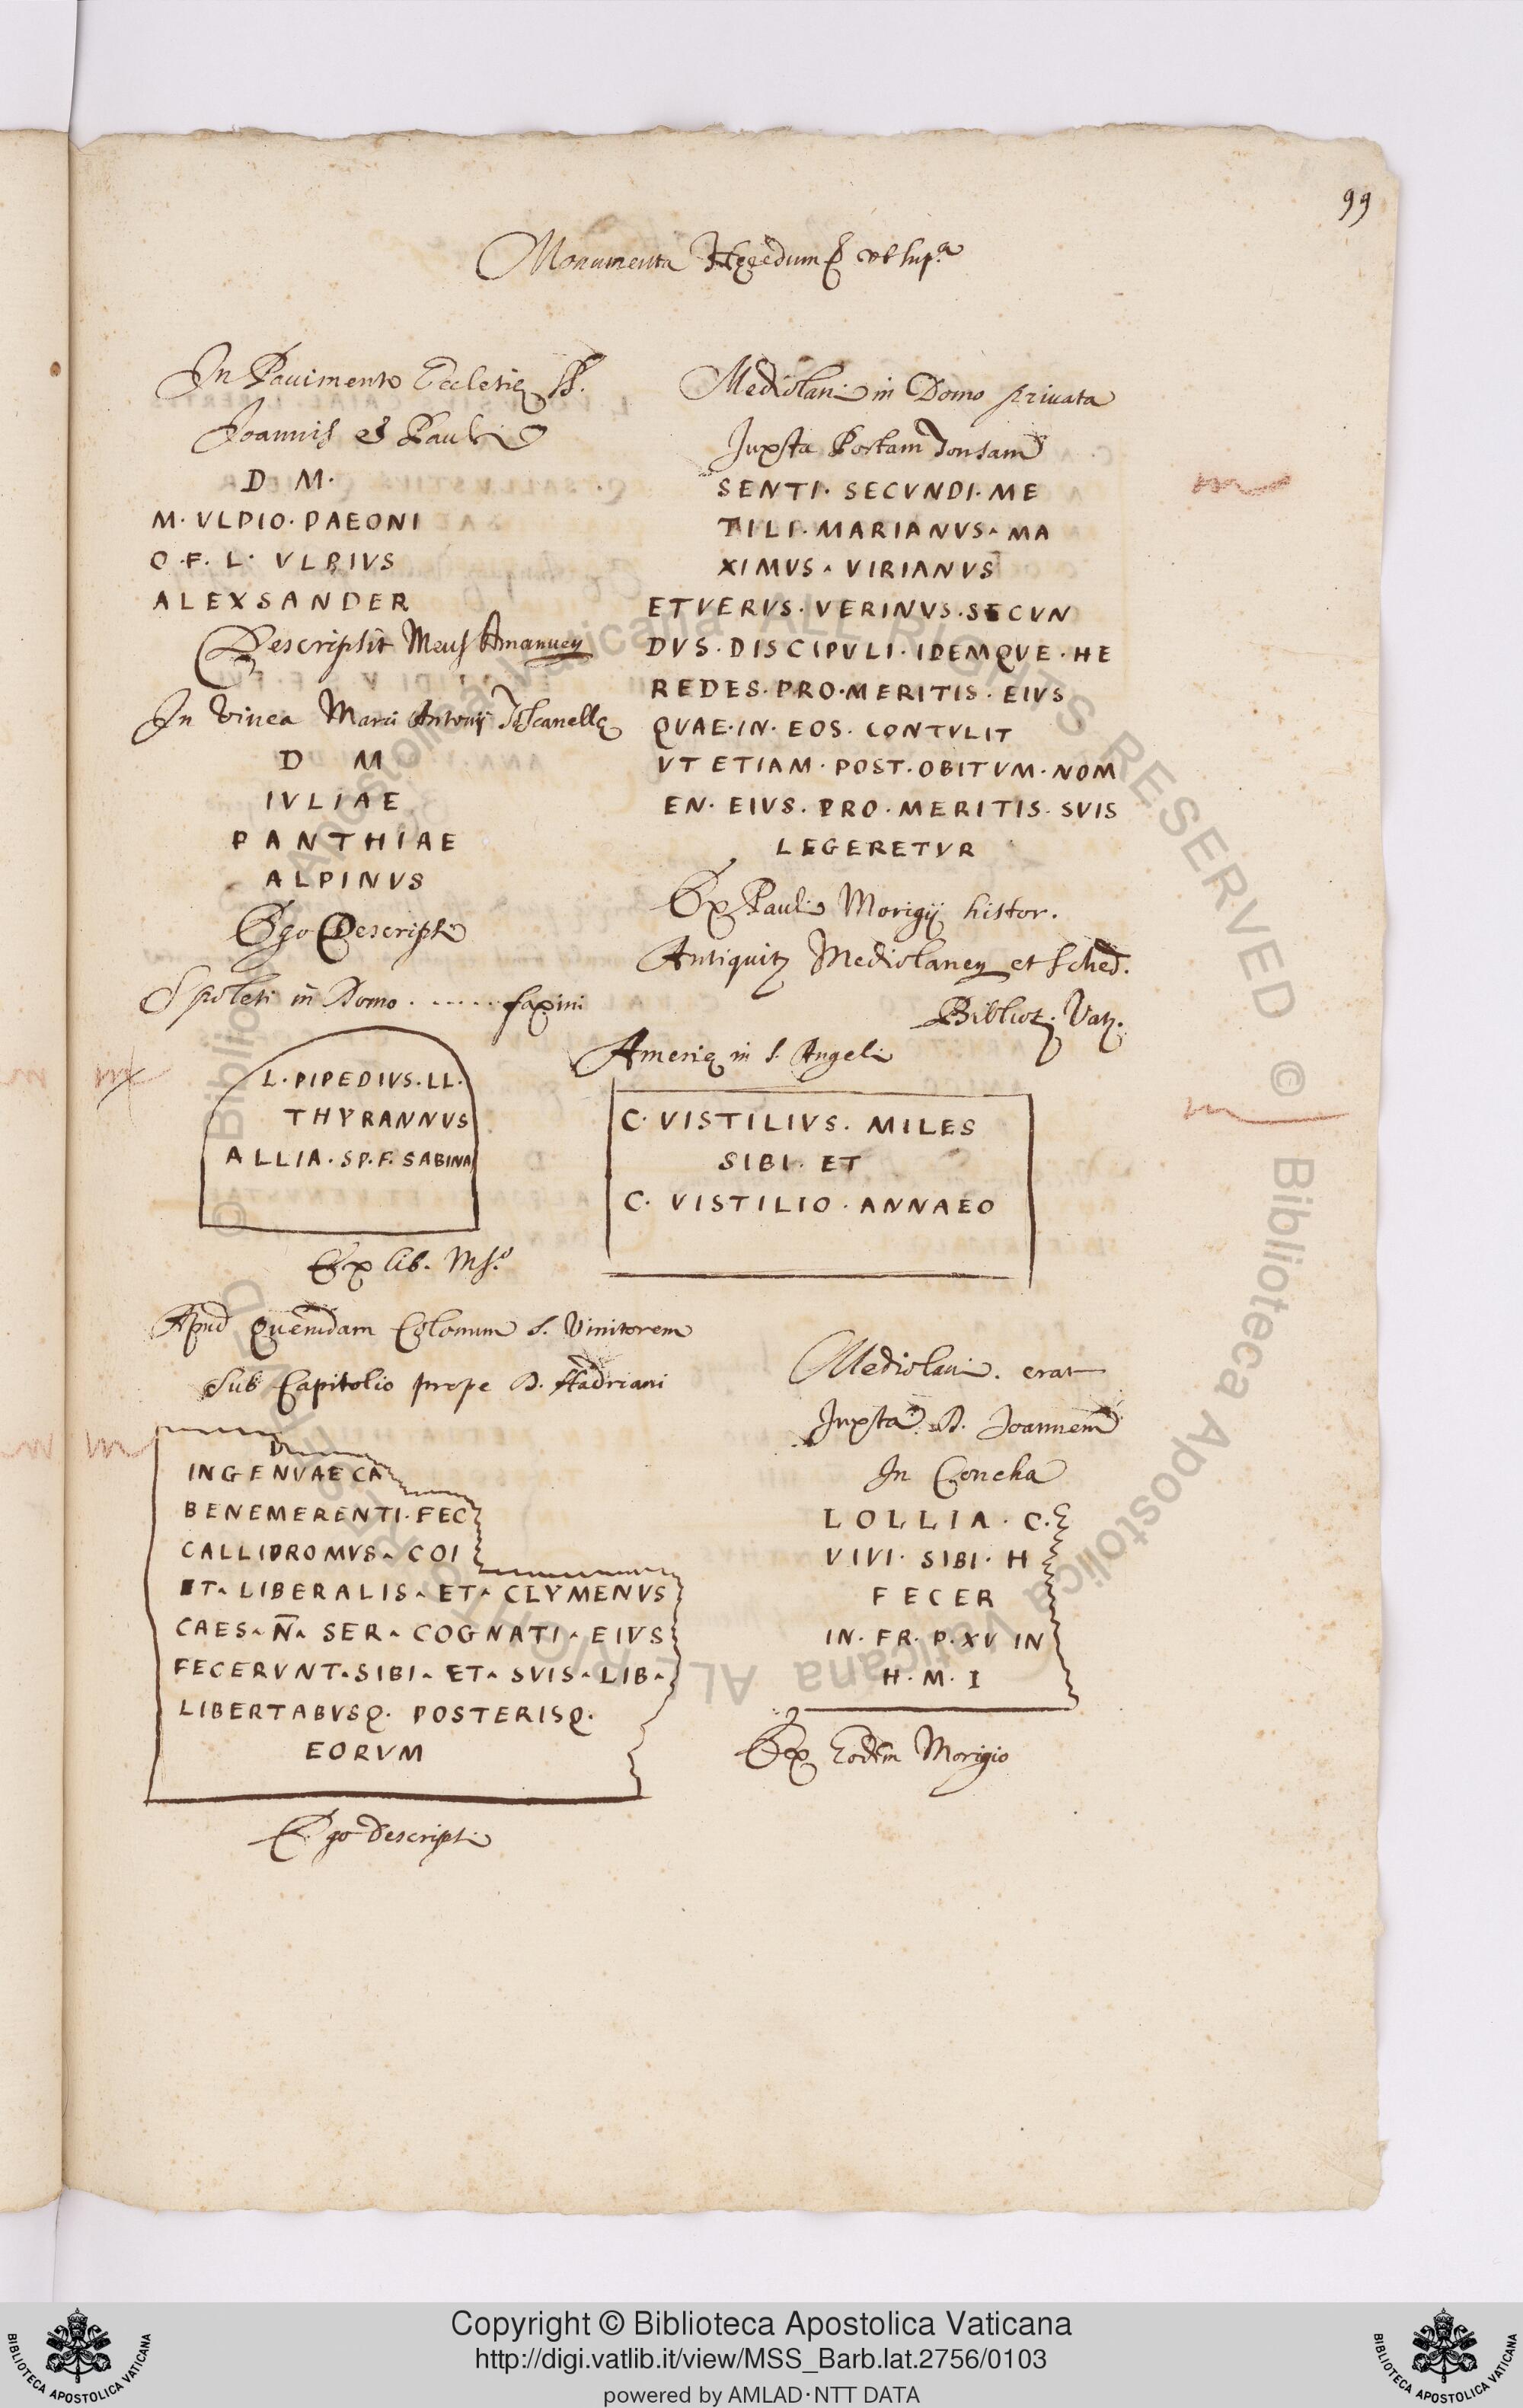 99
Monumenta Hęredum ut sup.a
In Pauimento Ecclesię SS.
Joannis et Pauli
D M.
M. VLPIO. PAEONI
O. F. L. VLPIVS
ALEXSANDER
Descripsit Meus Amanuen
In Vinea Marci Antonij Toscanellę
D M
IVLIAE
PANTHIAE
ALPINVS
Ego Descripsi
Spoleti in Domo . ..... faxini
L. PIPEDIVS. LL.
THYRANNVS
ALLIA. SP. F. SABINA
Ex lib. Ms.o
Apud Quemdam Colonum s. Vinitorem
Sub Capitolio prope D. Hadriani
D
INGENVAE CA
BENEMERENTI. FEC
CALLIDROMVS^ COI
ET^ LIBERALIS^ ET^ CLYMENVS
CAES^ N̅^ SER^ COGNATI^ EIVS
FECERVNT^ SIBI^ ET^ SVIS^ LIB^
LIBERTABVSQ. POSTERISQ.
EORVM
Ego descripsi
Mediolani in Domo priuata
Juxta Portam Tonsam
SENTI. SECVNDI. ME
TILI. MARIANVS^ MA
XIMVS^ VIRIANVS
ET VERVS. VERINVS. SECVN
DVS. DISCIPVLI. IDEMQVE. HE
REDES. PRO. MERITIS. EIVS
QVAE. IN. EOS. CONTVLIT
VT ETIAM. POST. OBITVM. NOM
EN. EIVS. PRO. MERITIS. SVIS
LEGERETVR
Ex Pauli Morigij histor.
Antiquit Mediolanen et Sched.
Bibliot. Vat.
Amerię in S. Angeli
C. VISTILIVS. MILES
SIBI. ET
C. VISTILIO. ANNAEO
Mediolani. erat
Juxta D. Joannem
In Concha
LOLLIA. C.
VIVI. SIBI. H
FECER
IN. FR. P. XV IN
H. M. I
Ex Eodem Morigio
Copyright © Biblioteca Apostolica Vaticana
http://digi.vatlib.it/view/MSS_Barb.lat.2756/0103
powered by AMLAD·NTT DATA
BIBLIOTECA APOSTOLICA VATICANA
BIBLIOTECA APOSTOLICA VATICANA
© Biblioteca Apostolica Vaticana ALL RIGHTS RESERVED © Biblioteca Apostolica Vaticana ALL RIGHTS RESERVED